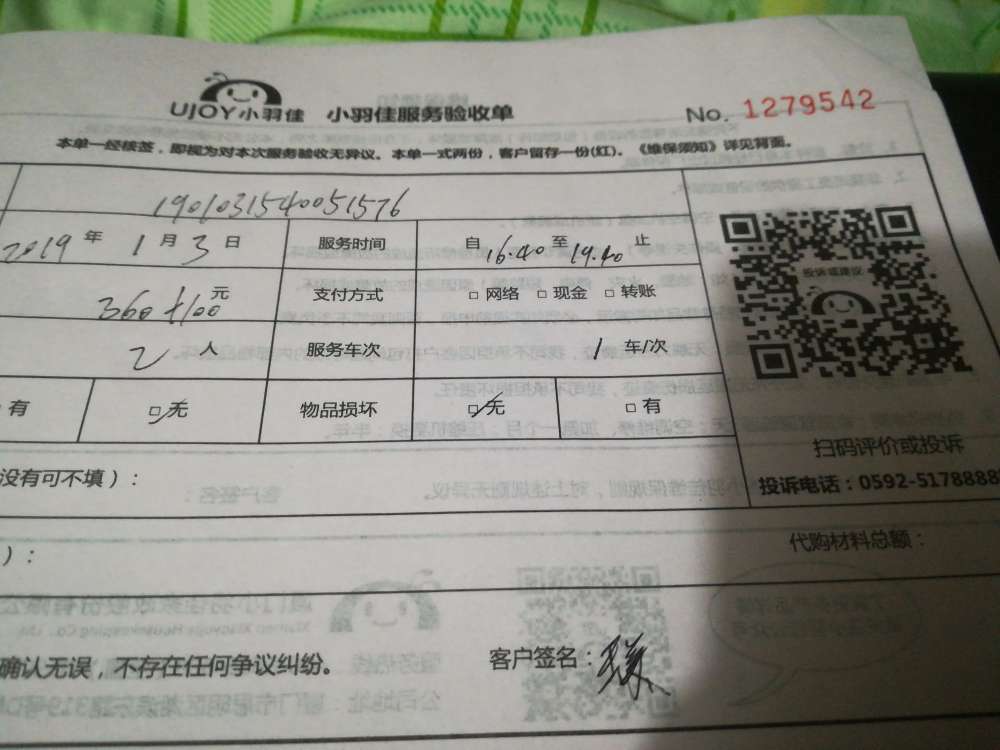 UJOY小羽佳 小羽佳服务验收单 No. 1279542
本单一经核签，即视为对本次服务验收无异议。本单一式两份，客户留存一份(红)。《维保须知》详见背面。
1901031540051576
2019 年 1 月 3 日 服务时间 自 16.40 至 19.40 止
360+100 元 支付方式 □ 网络 □ 现金 □ 转账
2 人 服务车次 1 车/次
有 □ 无 物品损坏 □ 无 □ 有
投诉或建议
扫码评价或投诉
没有可不填）：
投诉电话：0592-5178888
）：
代购材料总额：
确认无误，不存在任何争议纠纷。 客户签名：